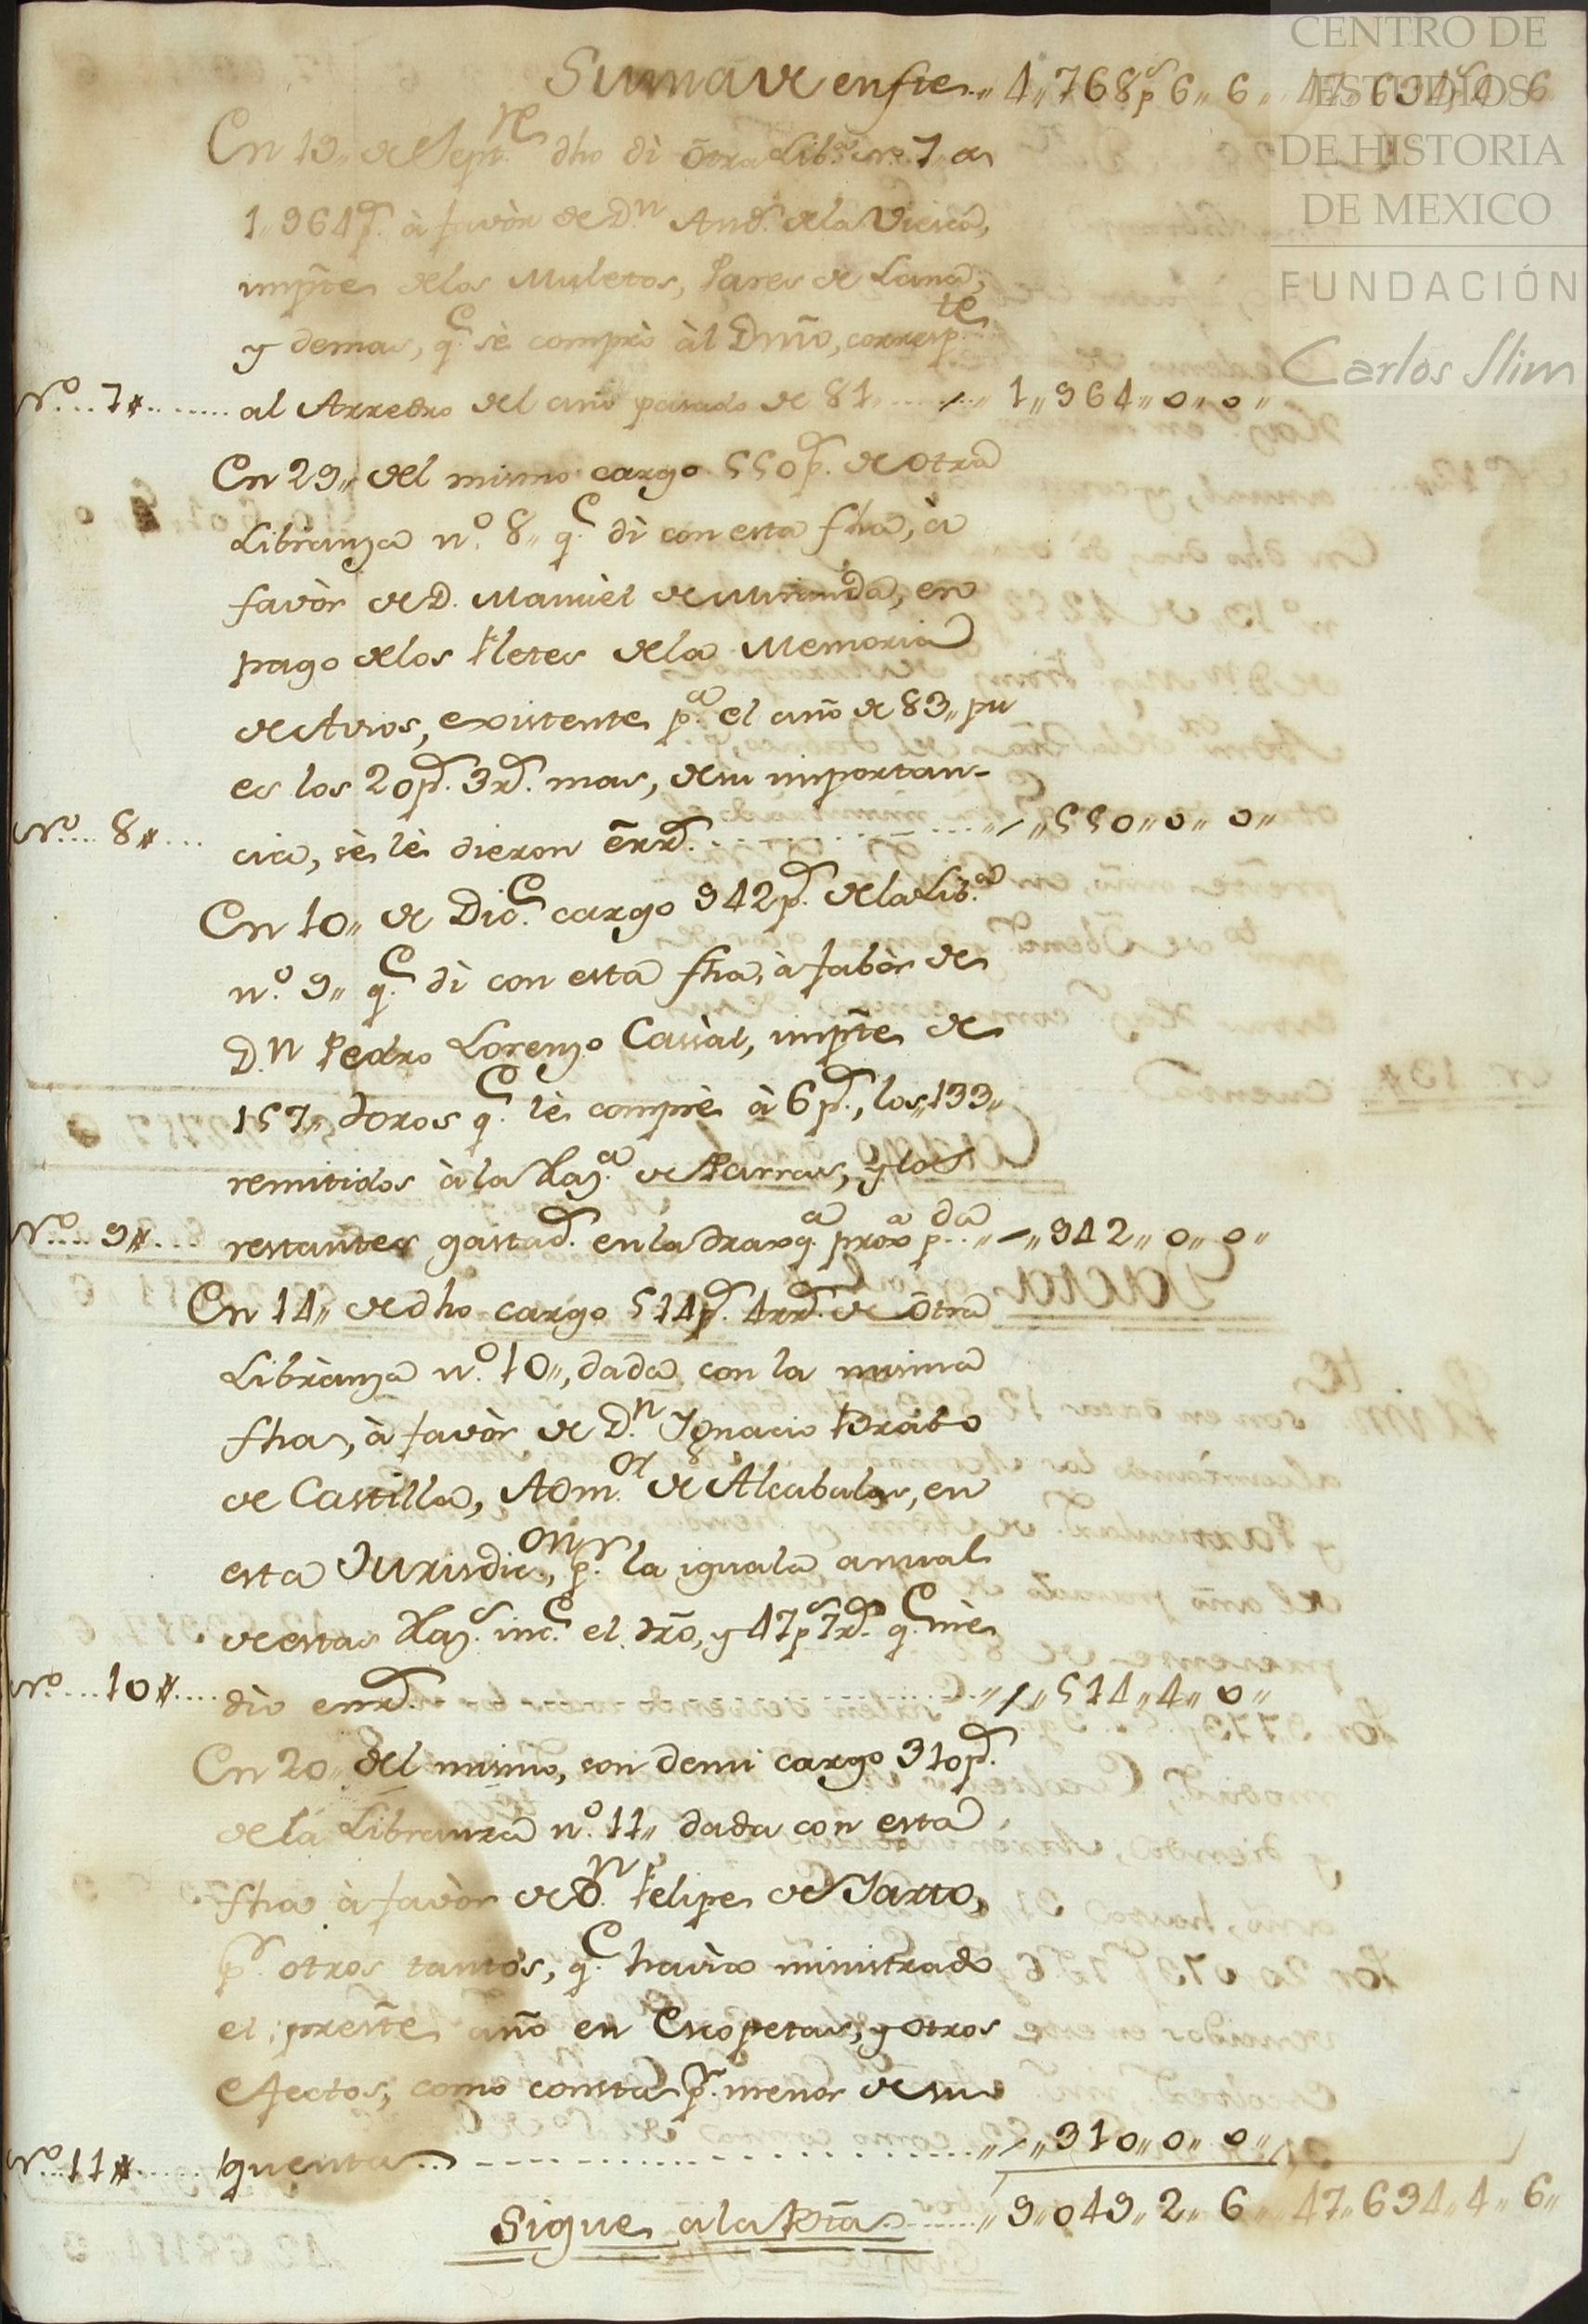 CENTRO DE
ESTUDIOS
DE HISTORIA
DE MEXICO
FUNDACIÓN
Carlos Slim
Suma de enfte. 4,,768ps 6,, 6,, 47,,634,,4,,6
En 19,, de Septre. dho dì õtra Liba. no. 7 a
1,,964pd. à favòr de Dn. Andd. dela Viesca,
impte delos Muletos, Pares de Lana,
y demas, qe. sè comprò àl Dmõ, correspte.
No... 7#........ al Arredro del año pasado de 81........ 1,,964,,0,,0,,
En 29,, del mismo cargo 550pd. de otra
Libranza no. 8,, qe. dì con esta fha, à
favòr de D. Manuèl de Miranda, en
pago delos fletes dela Memoria
de Avios, existente pa. el año de 83,, pu
es los 20pd. 3rd. mas, desu importan-
No.... 8#... cia, sè lè dieron ẽnrd. ........ ,,550,,0,,0,,
En 10,, de Dice. cargo 942pd. dela Liba.
no. 9,, qe. dì con esta fha, à fabòr de
Dn. Pedro Lorenzo Cassàl, impte de
157,, Toros qe. lè comprè à 6pd., los,,133,,
remitidos à la Haza. de Parras, y los
No.... 9#... restantes gastad. en la Traxqa. proxa pda. ,,942,,0,,0,,
En 14,, de dho cargo 514pd. 4rrd. de õtra
Librànza no. 10,,, dada con la misma
fha, à favòr de Dn. Ygnacio Brabo
de Castilla, Admor. de Alcabalas, en
esta Jurisdicon., pr. la iguala anual
de estas Hazs. ince. el dro, y 47ps 7rd. qe. mè
No.... 10#.... diò enrd. ........ ,,514,,4,,0,,
En 20,, del mismo, son demi cargo 310pd.
dela Libranza no. 11,, dada con esta
fha à favòr de Dn. Felipe de Yarto,
pr. otros tantos, qe. havìa ministrado
el presñte año en Escopetas, y otros
efectos, como consta pr. menor de su
No... 11#...... quenta........ ,,310,,0,,0,,
Sigue ala Bta........ ,,9,,049,,2,,6,, 47,,634,,4,,6,,